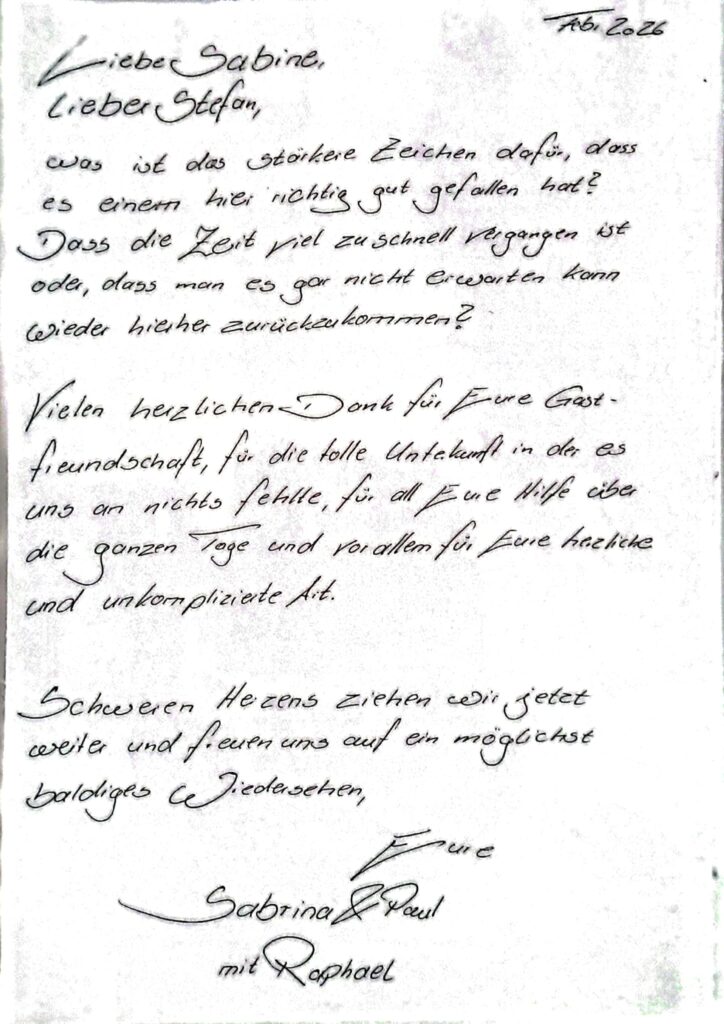 Feb. 2026
Liebe Sabine,
Lieber Stefan,
was ist das stärkere Zeichen dafür, dass
es einem hier richtig gut gefallen hat?
Dass die Zeit viel zu schnell vergangen ist
oder, dass man es gar nicht erwarten kann
wieder hierher zurückzukommen?
Vielen herzlichen Dank für Eure Gast-
freundschaft, für die tolle Unterkunft in der es
uns an nichts fehlte, für all Eure Hilfe über
die ganzen Tage und vor allem für Eure herzliche
und unkomplizierte Art.
Schweren Herzens ziehen wir jetzt
weiter und freuen uns auf ein möglichst
baldiges Wiedersehen,
Eure
Sabrina & Paul
mit Raphael